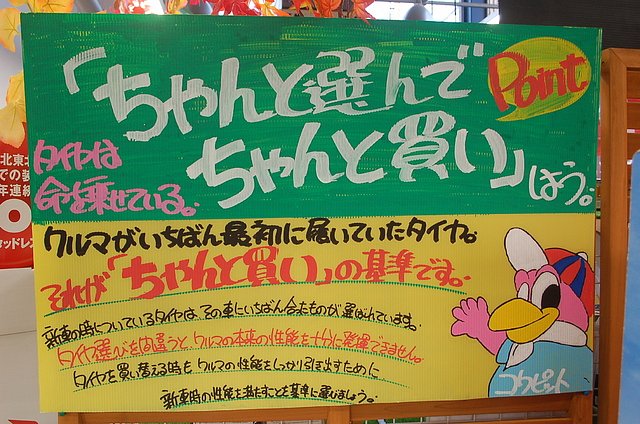 「ちゃんと選んで
Point
ちゃんと買い」しよう。
タイヤは
命を乗せている。
クルマがいちばん最初に履いていたタイヤ。
それが「ちゃんと買い」の基準です。
新車の時についているタイヤは、その車にいちばん合たものが選ばれています。
タイヤ選びを間違うとクルマの本来の性能を十分に発揮できません。
タイヤを買い替える時もクルマの性能をしっかり引き出すために
新車時の性能を満たすことを基準に選びましょう。
コクピット
北東
での装
年連続
ッドレス